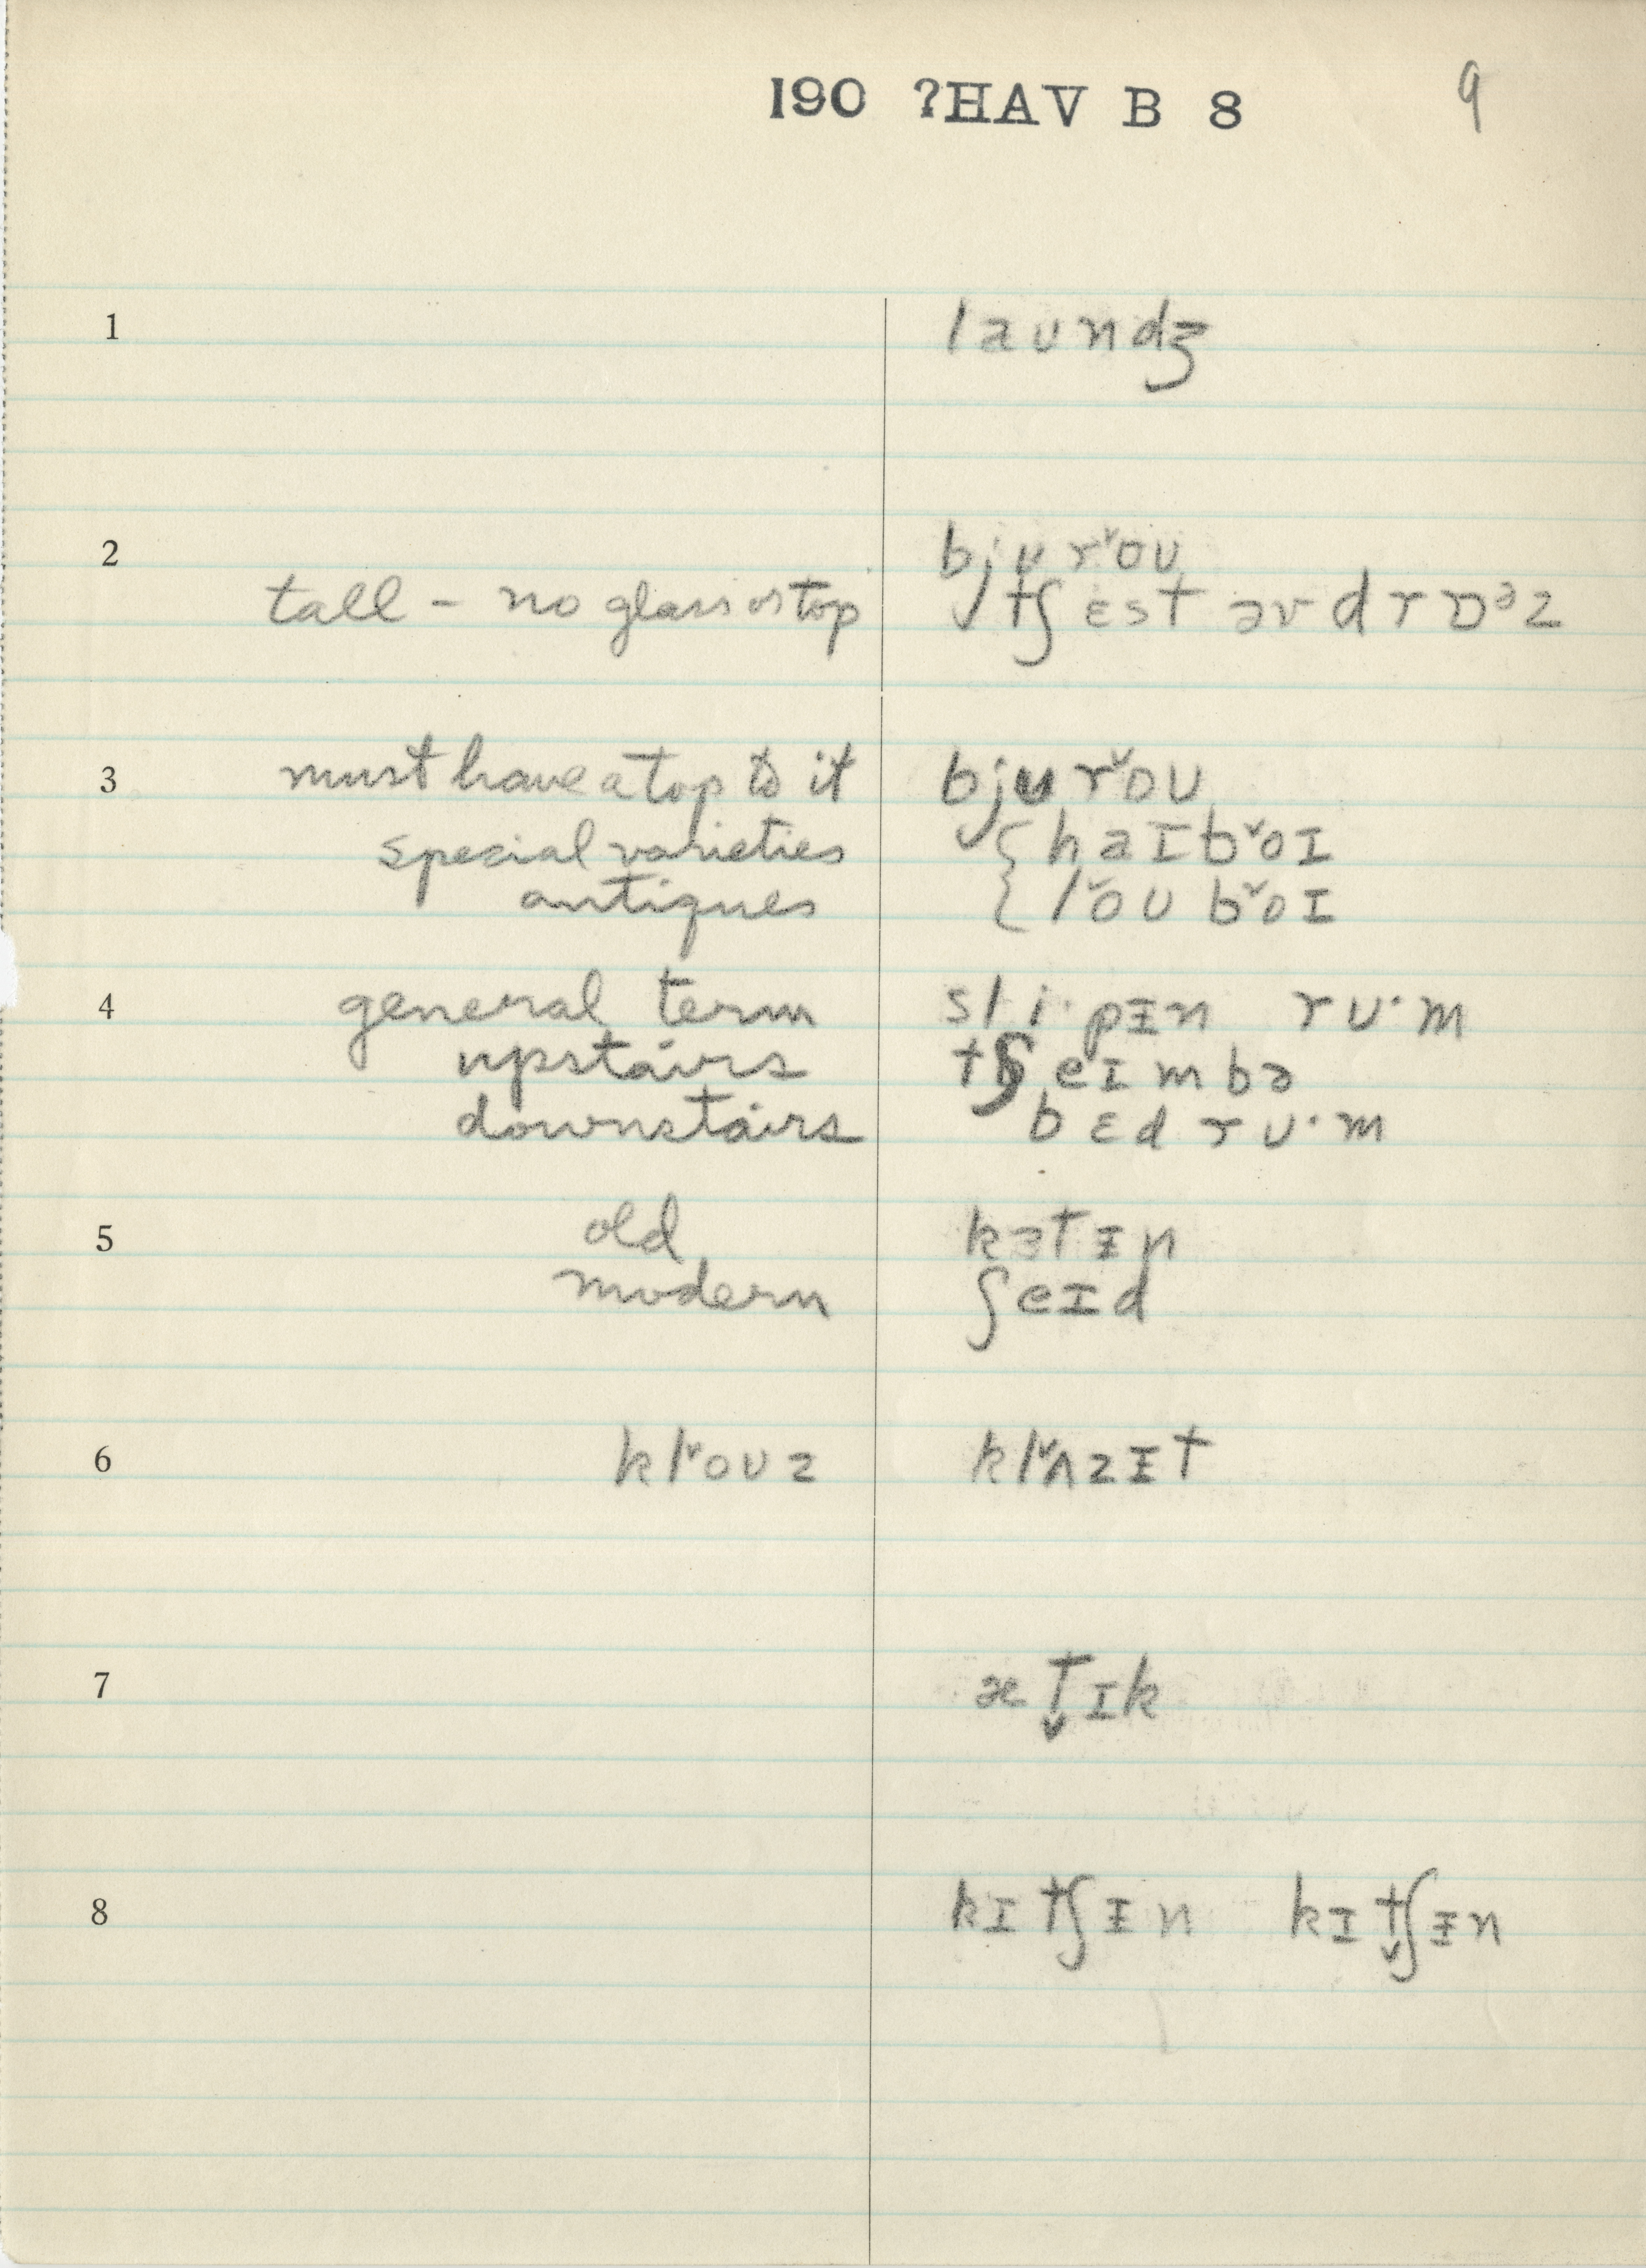 190 ?HAV B 8 9
1 laundʒ
2 bjʉrˇoʊ
tall - no glass or top tʃɛst əv drɒᵊz
3 must have a top to it bjʉrˇoʊ
special varieties { haɪbˇoɪ
antiques { lˇoʊbˇoɪ
4 general term sli·pɪ̵n ru·m
upstairs tʃeɪmbə
downstairs bɛdru·m
5 old kɜtɪ̵n
modern ʃeɪd
6 klˇoʊz klˇʌzɪ̵t
7 æt̬ɪk
8 kɪtʃɪ̵n kɪt̬ʃɪ̵n